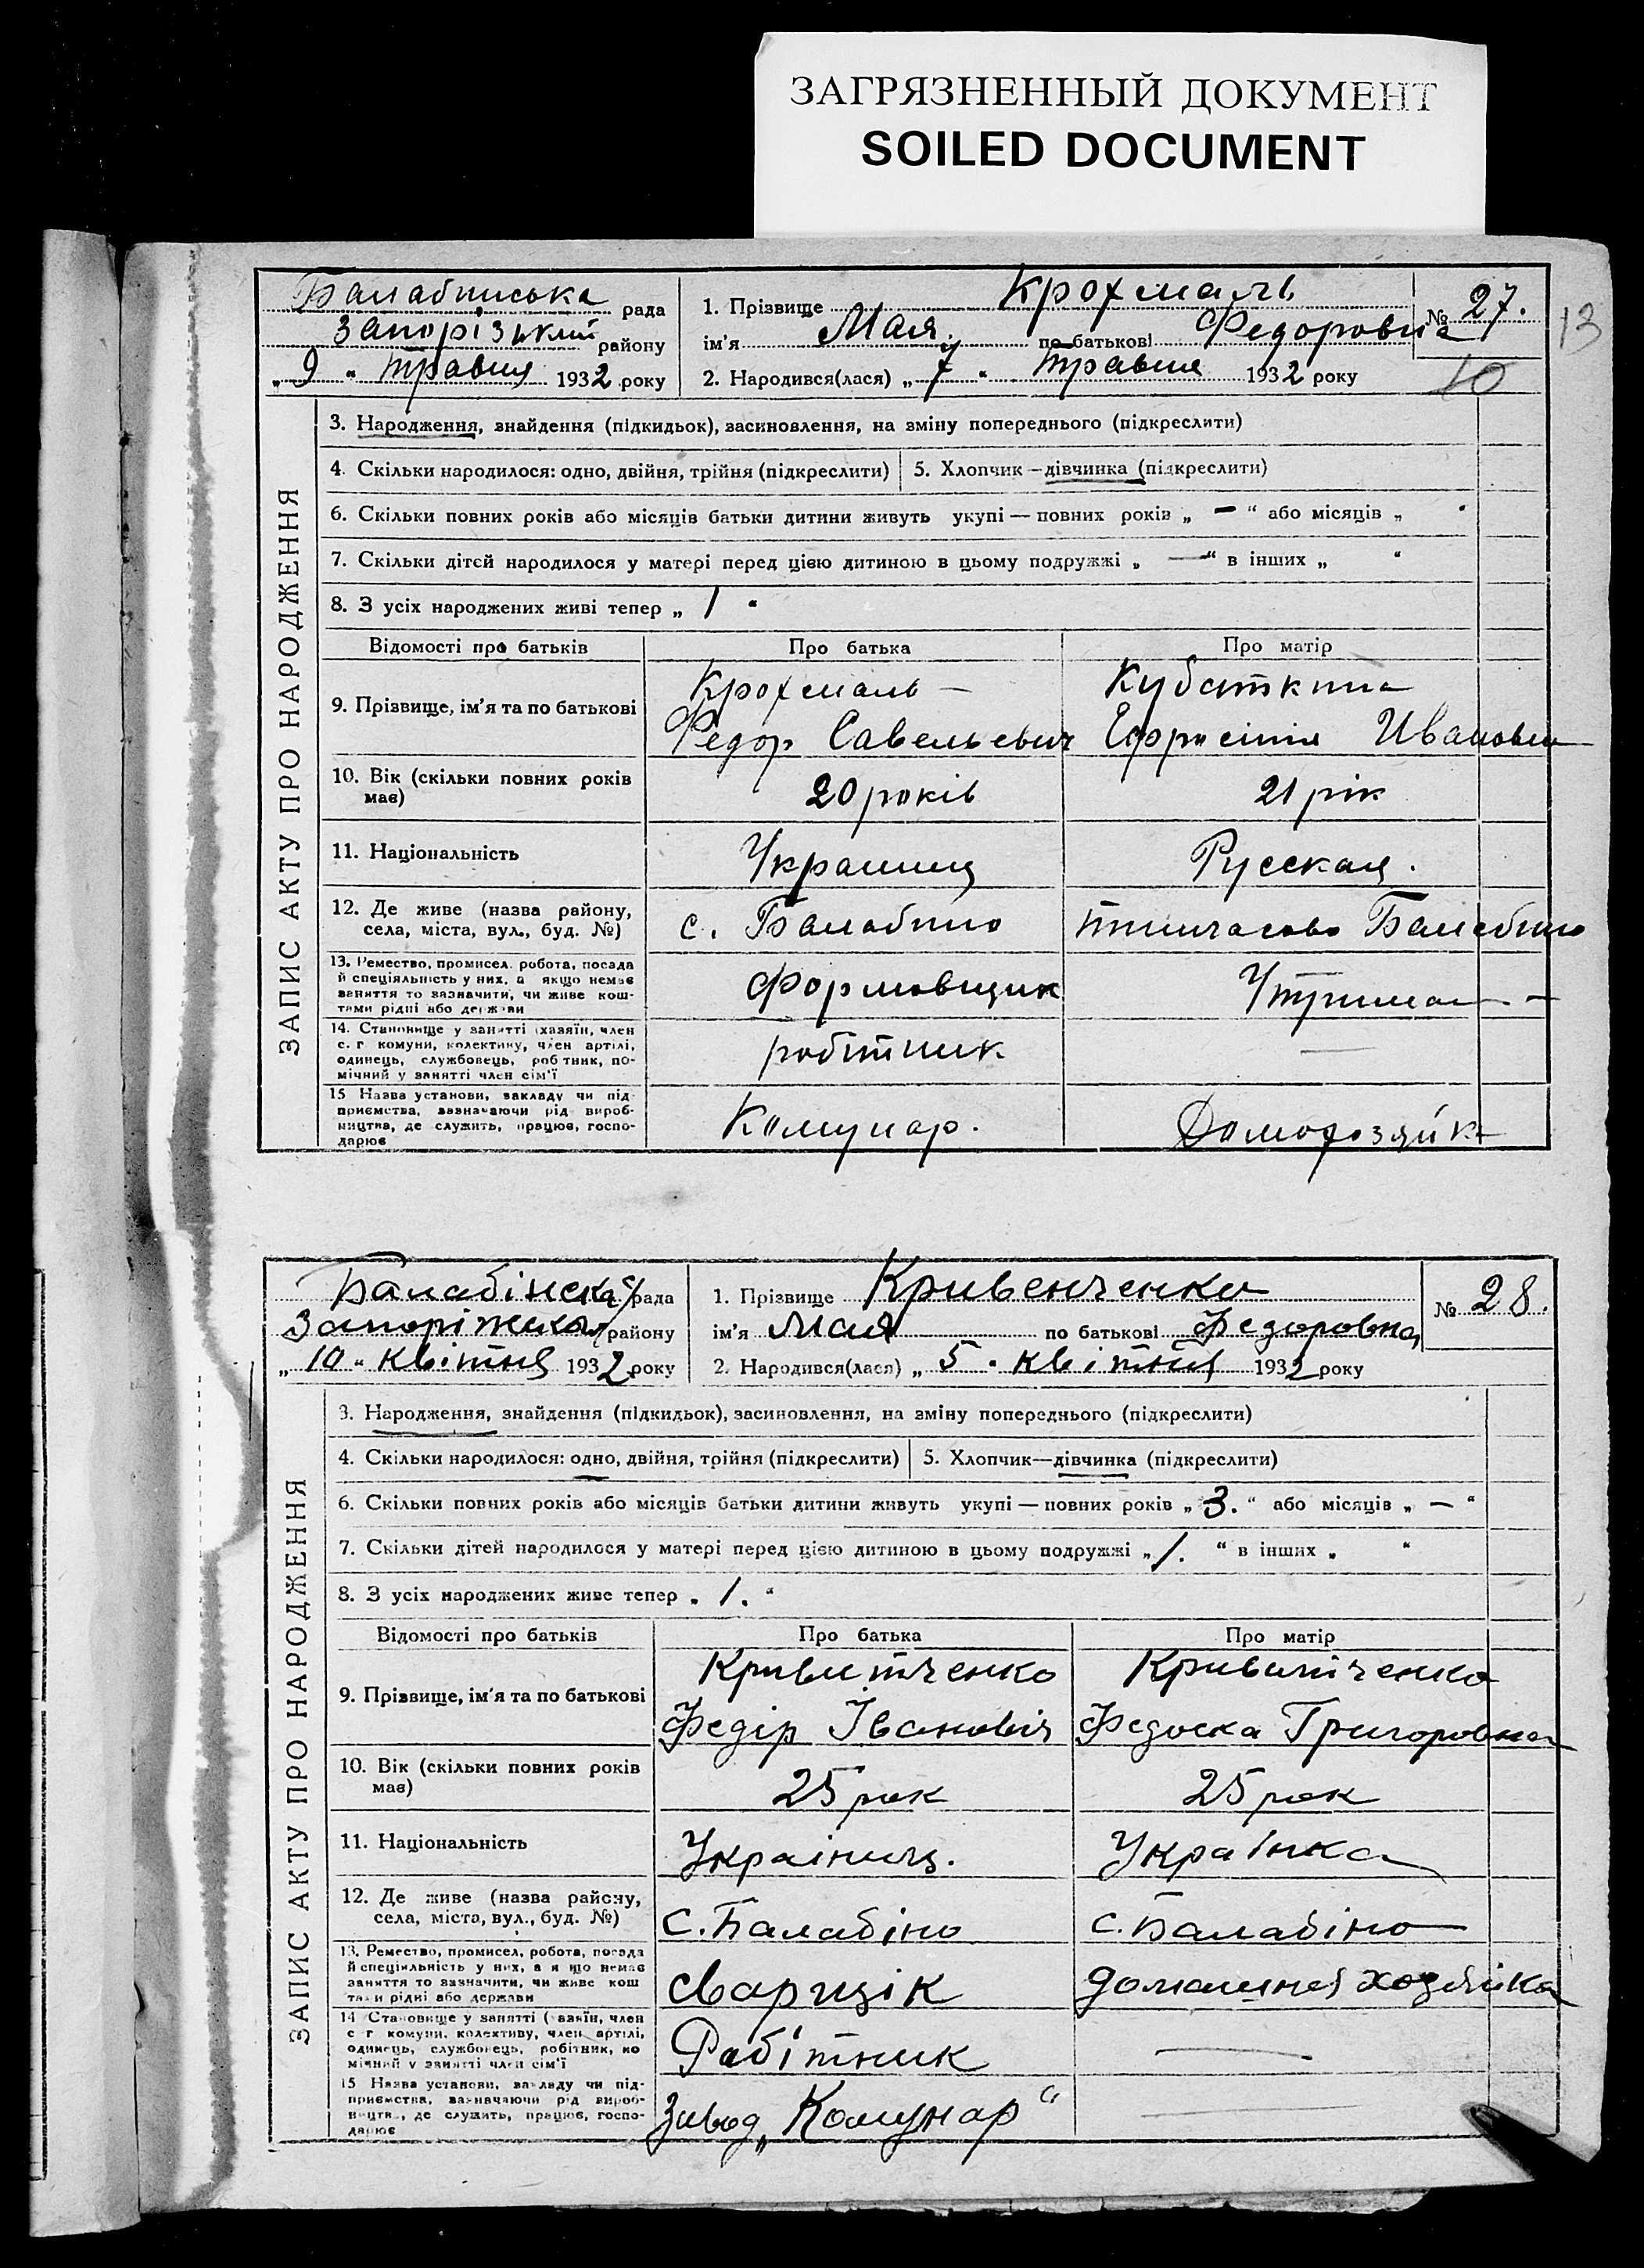 ЗАГРЯЗНЕННЫЙ ДОКУМЕНТ
SOILED DOCUMENT
13
ЗАПИС АКТУ ПРО НАРОДЖЕННЯ
Балабинська рада
Запорізький району
„ 9 “ травня 1932 року
1. Прізвище Крохмаль
ім'я Мая по батькові Федоровна
2. Народився(лася) „ 7 “ травня 1932 року
№ 27.
10
3. Народження, знайдення (підкидьок), засиновлення, на зміну попереднього (підкреслити)
4. Скільки народилося: одно, двійня, трійня (підкреслити) 5. Хлопчик—дівчинка (підкреслити)
6. Скільки повних років або місяців батьки дитини живуть укупі — повних років „ — “ або місяців „
7. Скільки дітей народилося у матері перед цією дитиною в цьому подружжі „ — “ в інших „ “
8. З усіх народжених живі тепер „ 1 “
Відомості про батьків Про батька Про матір
9. Прізвище, ім'я та по батькові
Крохмаль —
Федор Савельевич
Кубаткина
Ефросинія Ивановна
10. Вік (скільки повних років має) 20 років 21 рік
11. Національність Украинец Русская.
12. Де живе (назва району, села, міста, вул., буд. №) с. Балабино тимчасово Балабино
13. Ремество, промисел, робота, посада
й спеціяльність у них, а якщо немає
заняття то зазначити, чи живе кош-
тами рідні або держави
формовщик
14. Становище у занятті (хазяїн, член
с.г комуни, колективу, член артілі,
одинець, службовець, робтник, по-
мічний у занятті член сім'ї
робітник —
15 Назва установи, закладу чи під-
приємства, зазначаючи рід вироб-
ництва, де служить, працює, госпо-
дарює
Комунар. Домохозяйка
ЗАПИС АКТУ ПРО НАРОДЖЕННЯ
Балабінська рада
Запоріжська району
„ 10 “ квітня 1932 року
1. Прізвище Кривенченко
ім'я Мая по батькові Федоровна
2. Народився(лася) „ 5 “ квітня 1932 року
№ 28.
3. Народження, знайдення (підкидьок), засиновлення, на зміну попереднього (підкреслити)
4. Скільки народилося: одно, двійня, трійня (підкреслити) 5. Хлопчик—дівчинка (підкреслити)
6. Скільки повних років або місяців батьки дитини живуть укупі — повних років „ 3. “ або місяців „ — “
7. Скільки дітей народилося у матері перед цією дитиною в цьому подружжі „ 1. “ в інших „ “
8. З усіх народжених живе тепер „ 1. “
Відомості про батьків Про батька Про матір
9. Прізвище, ім'я та по батькові
Федір Івановіч
Федоска Григоровна
10. Вік (скільки повних років має) 25 рок 25 рок
11. Національність Українец. Українка
12. Де живе (назва району, села, міста, вул., буд. №) с. Балабіно с. Балабіно
13. Ремество, промисел, робота, посада
й спеціяльність у них, а якщо немає
заняття то зазначити, чи живе кош
тами рідні або держави
сварщік домашня хозяйка
14 Становище у занятті (хазяїн, член
с г комуни, колективу, член артілі,
одинець, службовець, робітник, по
мічний у занятті член сім'ї
Робітник —
15 Назва установи, закладу чи під-
приємства, зазначаючи рід вироб-
ництва, де служить, працює, госпо-
дарює
Завод „Комунар“ —